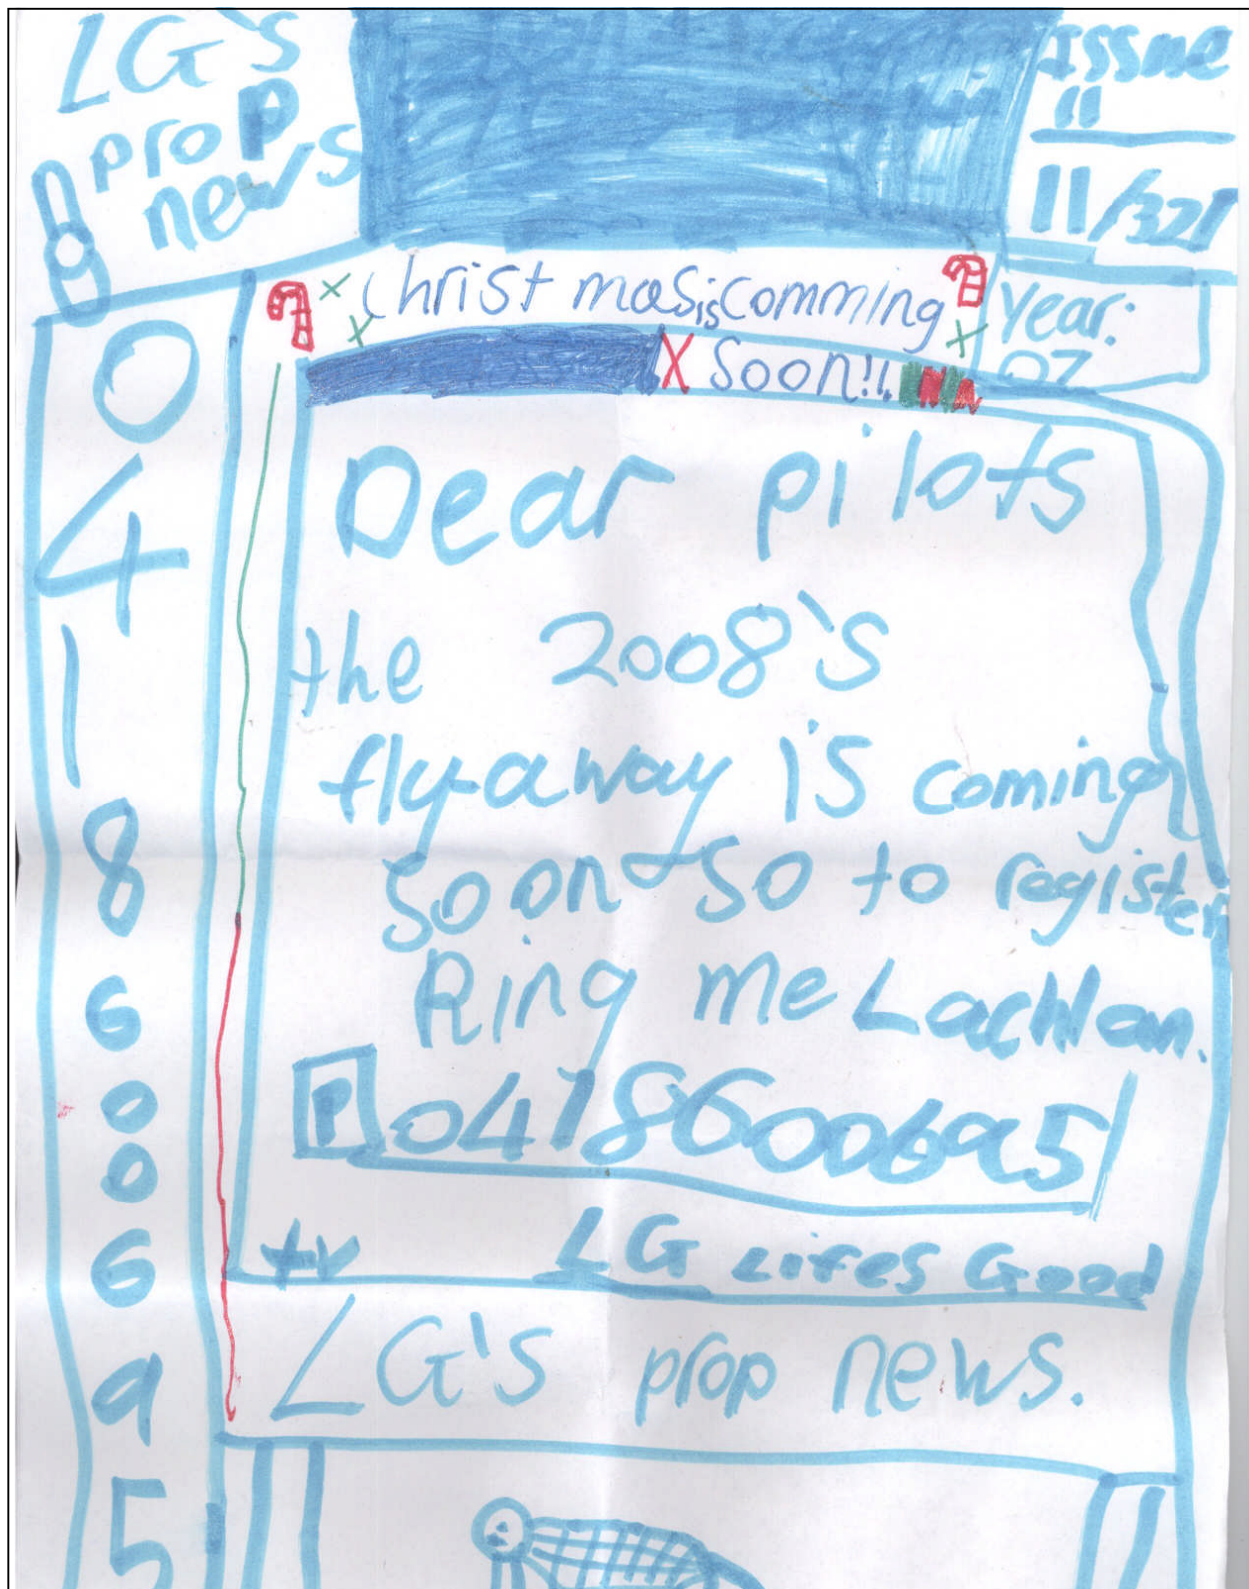 LG's
prop
news
Issue
11
11/321
Christmas is comming
soon!!
Year:
07
Dear pilots
the 2008's
fly-away is coming
soon so to register
Ring me Lachlan.
P 0418600695
tv LG Lifes Good
LG's prop news.
0
4
1
8
6
0
0
6
9
5